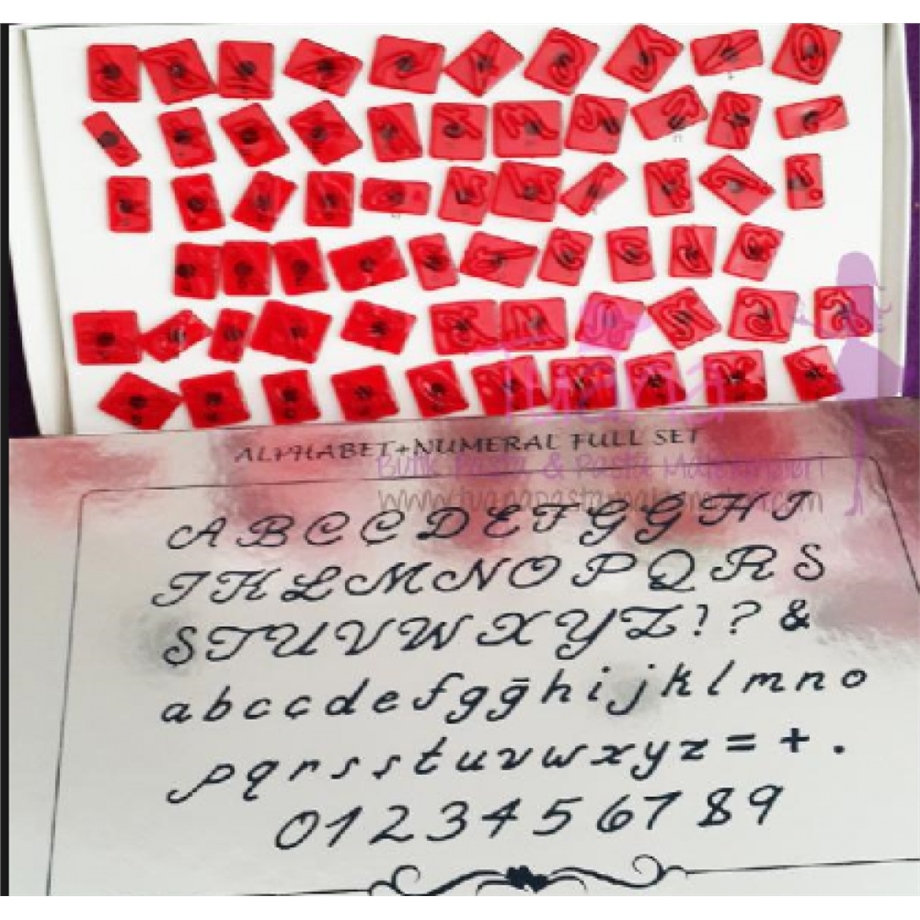 ALPHABET+NUMERAL FULL SET
Butik Pasta & Pasta Malzemeleri
A B C C D E F G G H I
J K L M N O P Q R S
S T U V W X Y Z ! ? &
a b c c d e f g ğ h i j k l m n o
p q r s s t u v w x y z = + .
0 1 2 3 4 5 6 7 8 9